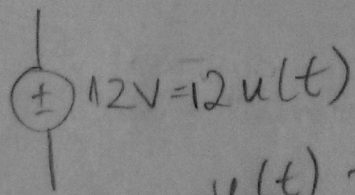 ± 12V=12u(t)
u(t)